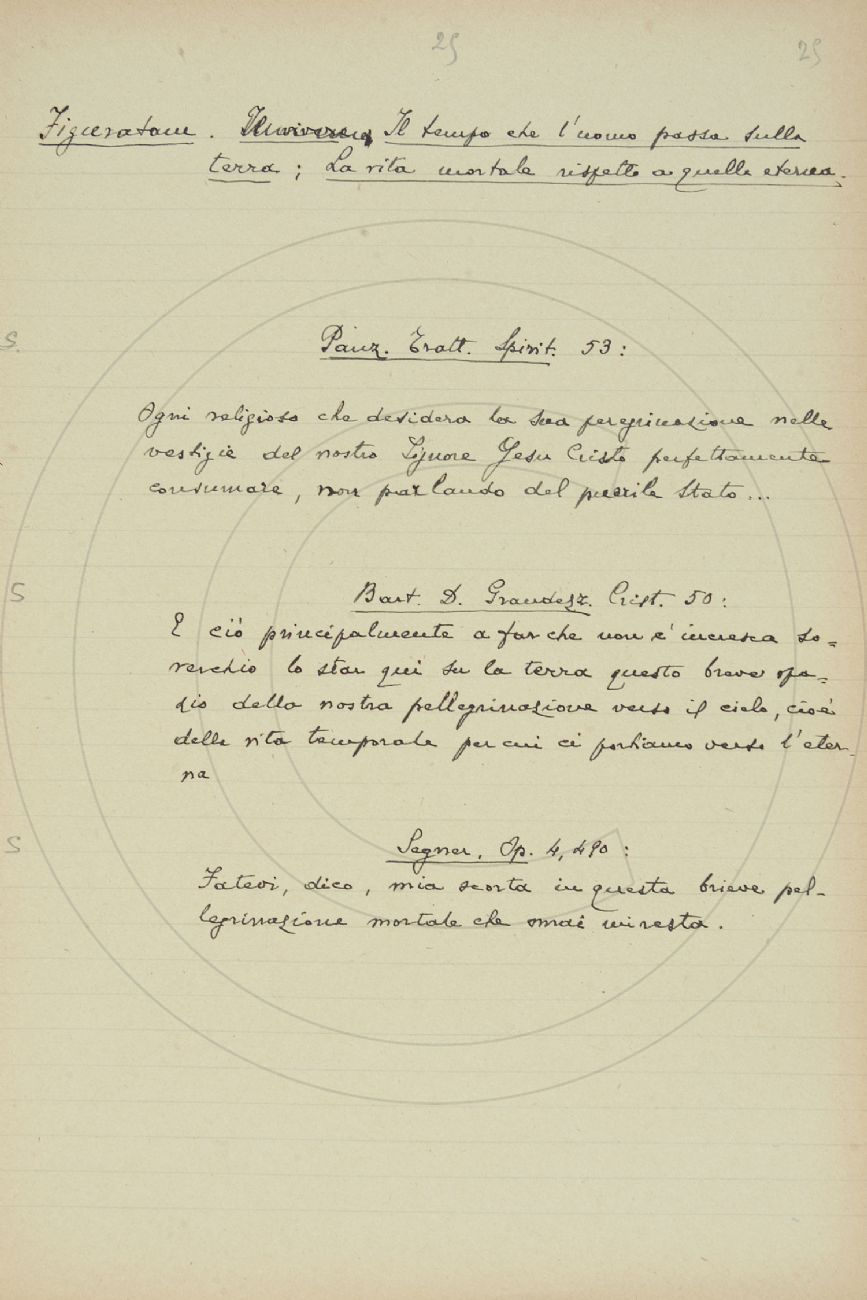 25 25
Figuratam. Il tempo che l'uomo passa sulla
terra; La vita mortale rispetto a quella eterna.
S.
Panz. Tratt. Spirit. 53:
Ogni religioso che desidera la sua peregrinazione nelle
vestigie del nostro Signore Gesu Cristo perfettamente
consumare, non parlando del puerile stato...
S
Bart. D. Grandezz. Crist. 50:
E ciò principalmente a far che non c'incresca so=
verchio lo star qui su la terra questo breve spa=
zio della nostra pellegrinazione verso il cielo, cioè
della vita temporale per cui ci portiamo verso l'eter-
na
S
Segner. Op. 4, 490:
Fatevi, dico, mia scorta in questa brieve pel-
legrinazione mortale che omai mi resta.